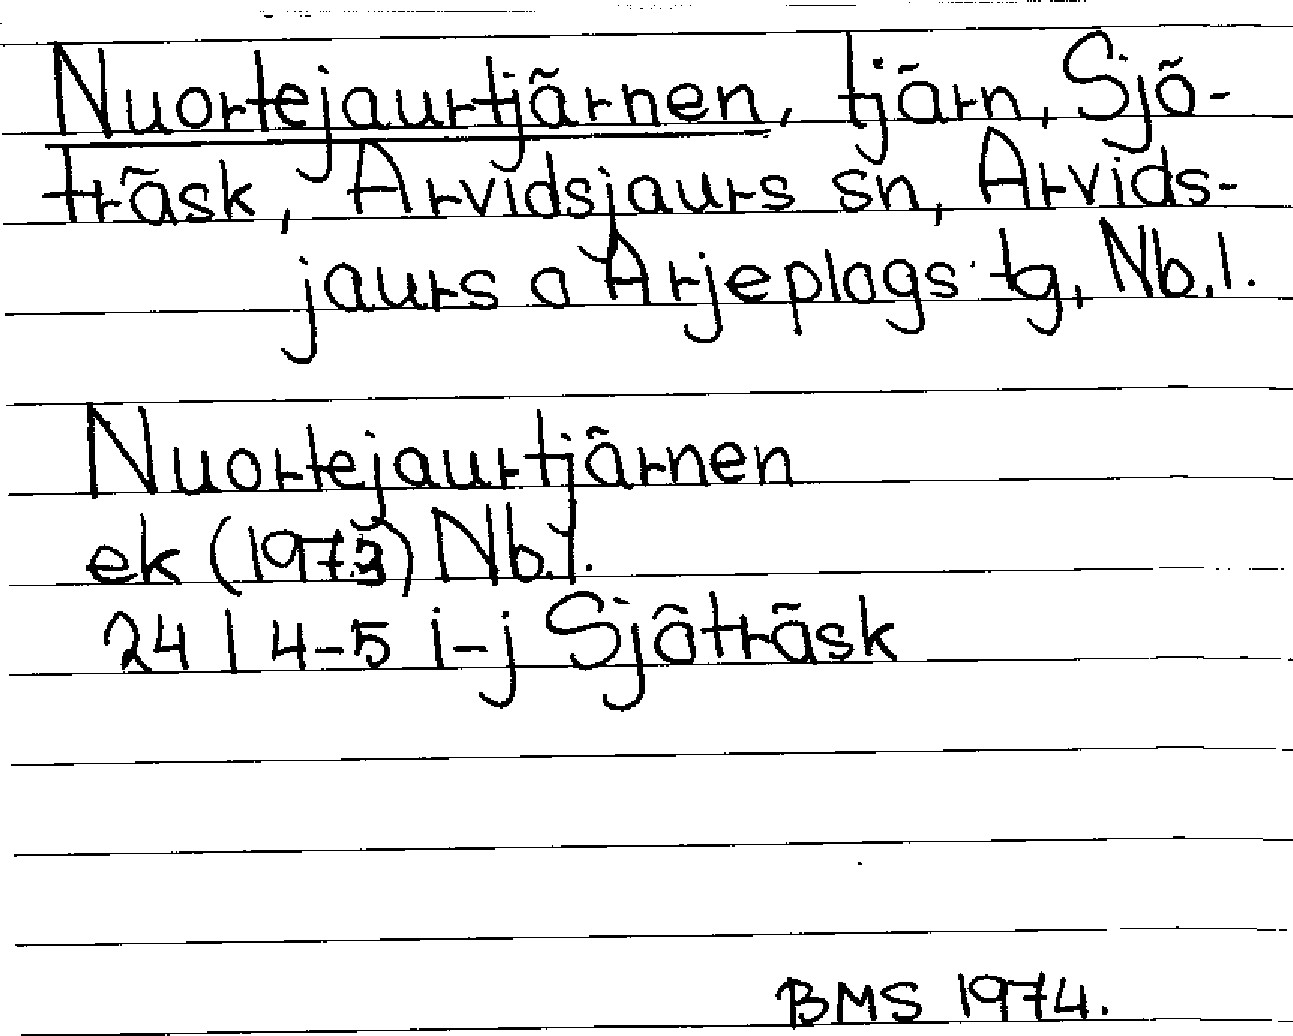 Nuortejaurtjärnen, tjärn, Sjö-
träsk, Arvidsjaurs sn, Arvids-
jaurs o Arjeplogs tg, Nb.l.
Nuortejaurtjärnen
ek (1973) Nb.l.
24 I 4-5 i-j Sjöträsk
BMS 1974.